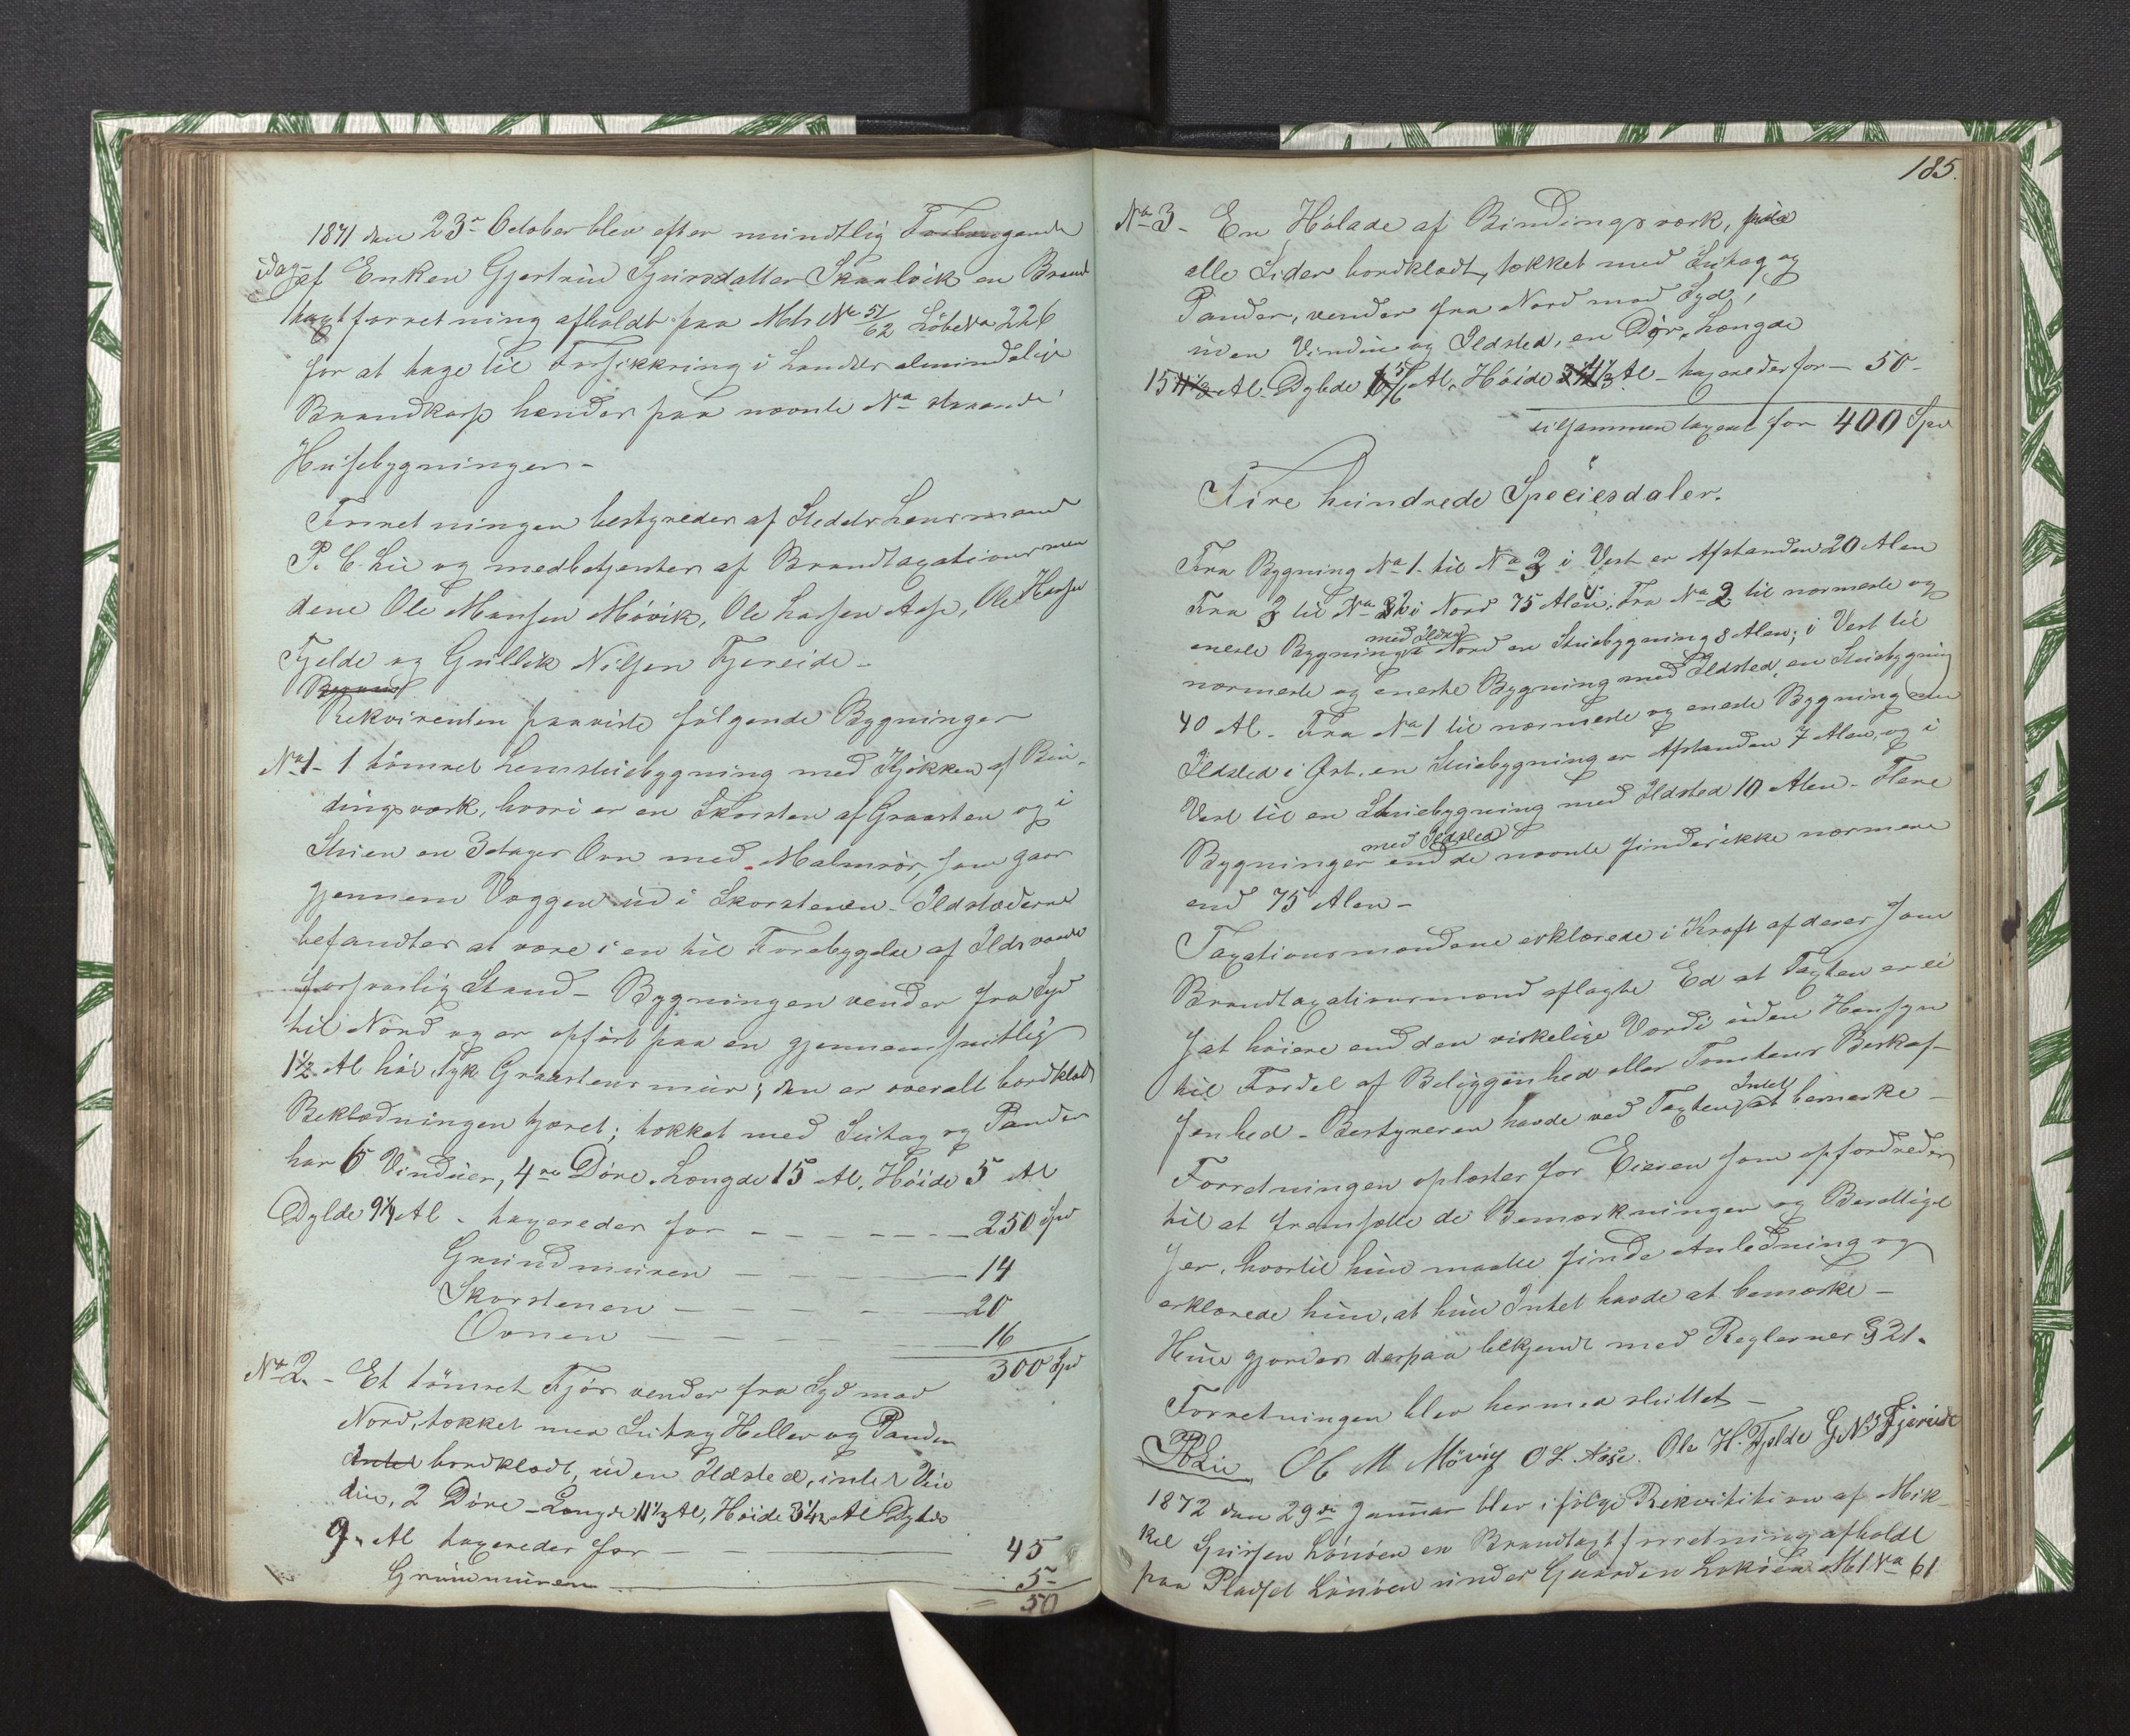 1871 den 23de October blev efter mundtlig Forlangende
idag af Enken Gjertrud Sjursdatter Skaalvik en Brand
taxtforretning afholdt paa Mtr No 51/62 Löbe No 226
for at tage til Forsikkring i Landets almindelige
Brandkasse hendes paa nævnte No staaende
Husebygninger -
Forretningen bestyredes af Stedets Lensmand
P. C. Lie og medbetjentes af Brandtaxationsmæn
dene Ole Monsen Mövik, Ole Larsen Aase, Ole Hansen
Fjelde og Gullik Nilsen Fjereide -
Rekvirenten paaviste fölgende Bygninger
No 1 - 1 tömret Lemstuebygning med Kjökken af Bin-
dingsværk, hvori er en Skorsten af Graasten og i
Stuen en 3 etages Ovn med Malmrör, som gaar
gjennem Væggen ud i Skorstenen - Ildstæderne
befandtes at være i en til Forebyggelse af Ildsvaade
forsvarlig Stand - Bygningen vender fra Syd
til Nord og er opfört paa en gjennemsnitlig
1½ Al höi Tyk Graastensmuur; den er overalt bordklædt
Beklædningen tjæret; tækket med Sutag og Pander
har 6 Vinduer, 4re Döre. Længde 15 Al. Höide 5 Al
Dybde 9¼ Al - taxeredes for - - - - - - - 250 Spd
Grundmuren - - - - - 14
Skorstenen - - - - - 20
Ovnen - - - - - 16
300 Spd
No 2. - Et tömret Fjös vender fra Syd mod
Nord, tækket med Sutag Heller og Pander
bordklædt, uden Ildsted, intet Vin
due, 2 Döre - Længde 11⅓ Al, Höide 3½ Al Dybde
9 Al taxeredes for - - 45
Grundmuren - 5 -
= 50
185.
No 3 - En Hölade af Bindingsværk, paa
alle Sider bordklædt, tækket med Sutag og
Pander, vender fra Nord mod Syd,
uden Vindue og Ildsted, en Dör. Længde
15 Al. Dybde 6 5/6 Al. Höide 4⅓ Al - taxeredes for - 50 -
tilsammen taxeret for 400 Spd
Fire hundrede Speciesdaler.
Fra Bygning No 1 til No 3 i Vest er Afstanden 20 Alen
Fra 3 til No 2 i Nord 75 Alen; Fra No 2 til nærmeste og
eneste Bygning med Ildsted i Nord en Stuebygning 8 Alen; i Vest til
nærmeste og eneste Bygning med Ildsted, en Stuebygning
40 Al - Fra No 1 til nærmeste og eneste Bygning med
Ildsted i Öst, en Stuebygning er Afstanden 7 Alen, og i
Vest til en Stuebygning med Ildsted 10 Alen - Flere
Bygninger med Ildsted end de nævnte findes ikke nærmere
end 75 Alen -
Taxationsmændene erklærede i Kraft af deres som
Brandtaxationsmænd aflagte Ed at Taxten er ei
sat höiere end den virkelige Værdi uden Hensyn
til Fordel af Beliggenhed eller Tomtens Beskaf-
fenhed - Bestyreren havde ved Taxten Intet at bemærke -
Forretningen oplæstes for Eieren som opfordredes
til at fremsætte de Bemærkninger og Berettigel
ser, hvortil hun maatte finde Anledning og
erklærede hun, at hun Intet havde at bemærke -
Hun gjordes derpaa bekjendt med Reglernes § 21.
Forretningen blev hermed sluttet -
PCLie Ole M Mövig O L. Aase. Ole H. Fjelde G N S Fjereide
1872 den 29de Januar blev i fölge Rekvisition af Mik-
kel Sjursen Lönöen en Brandtaxtforretning afholdt
paa Pladsen Lönöen under Gaarden Loköen Mt. No 61